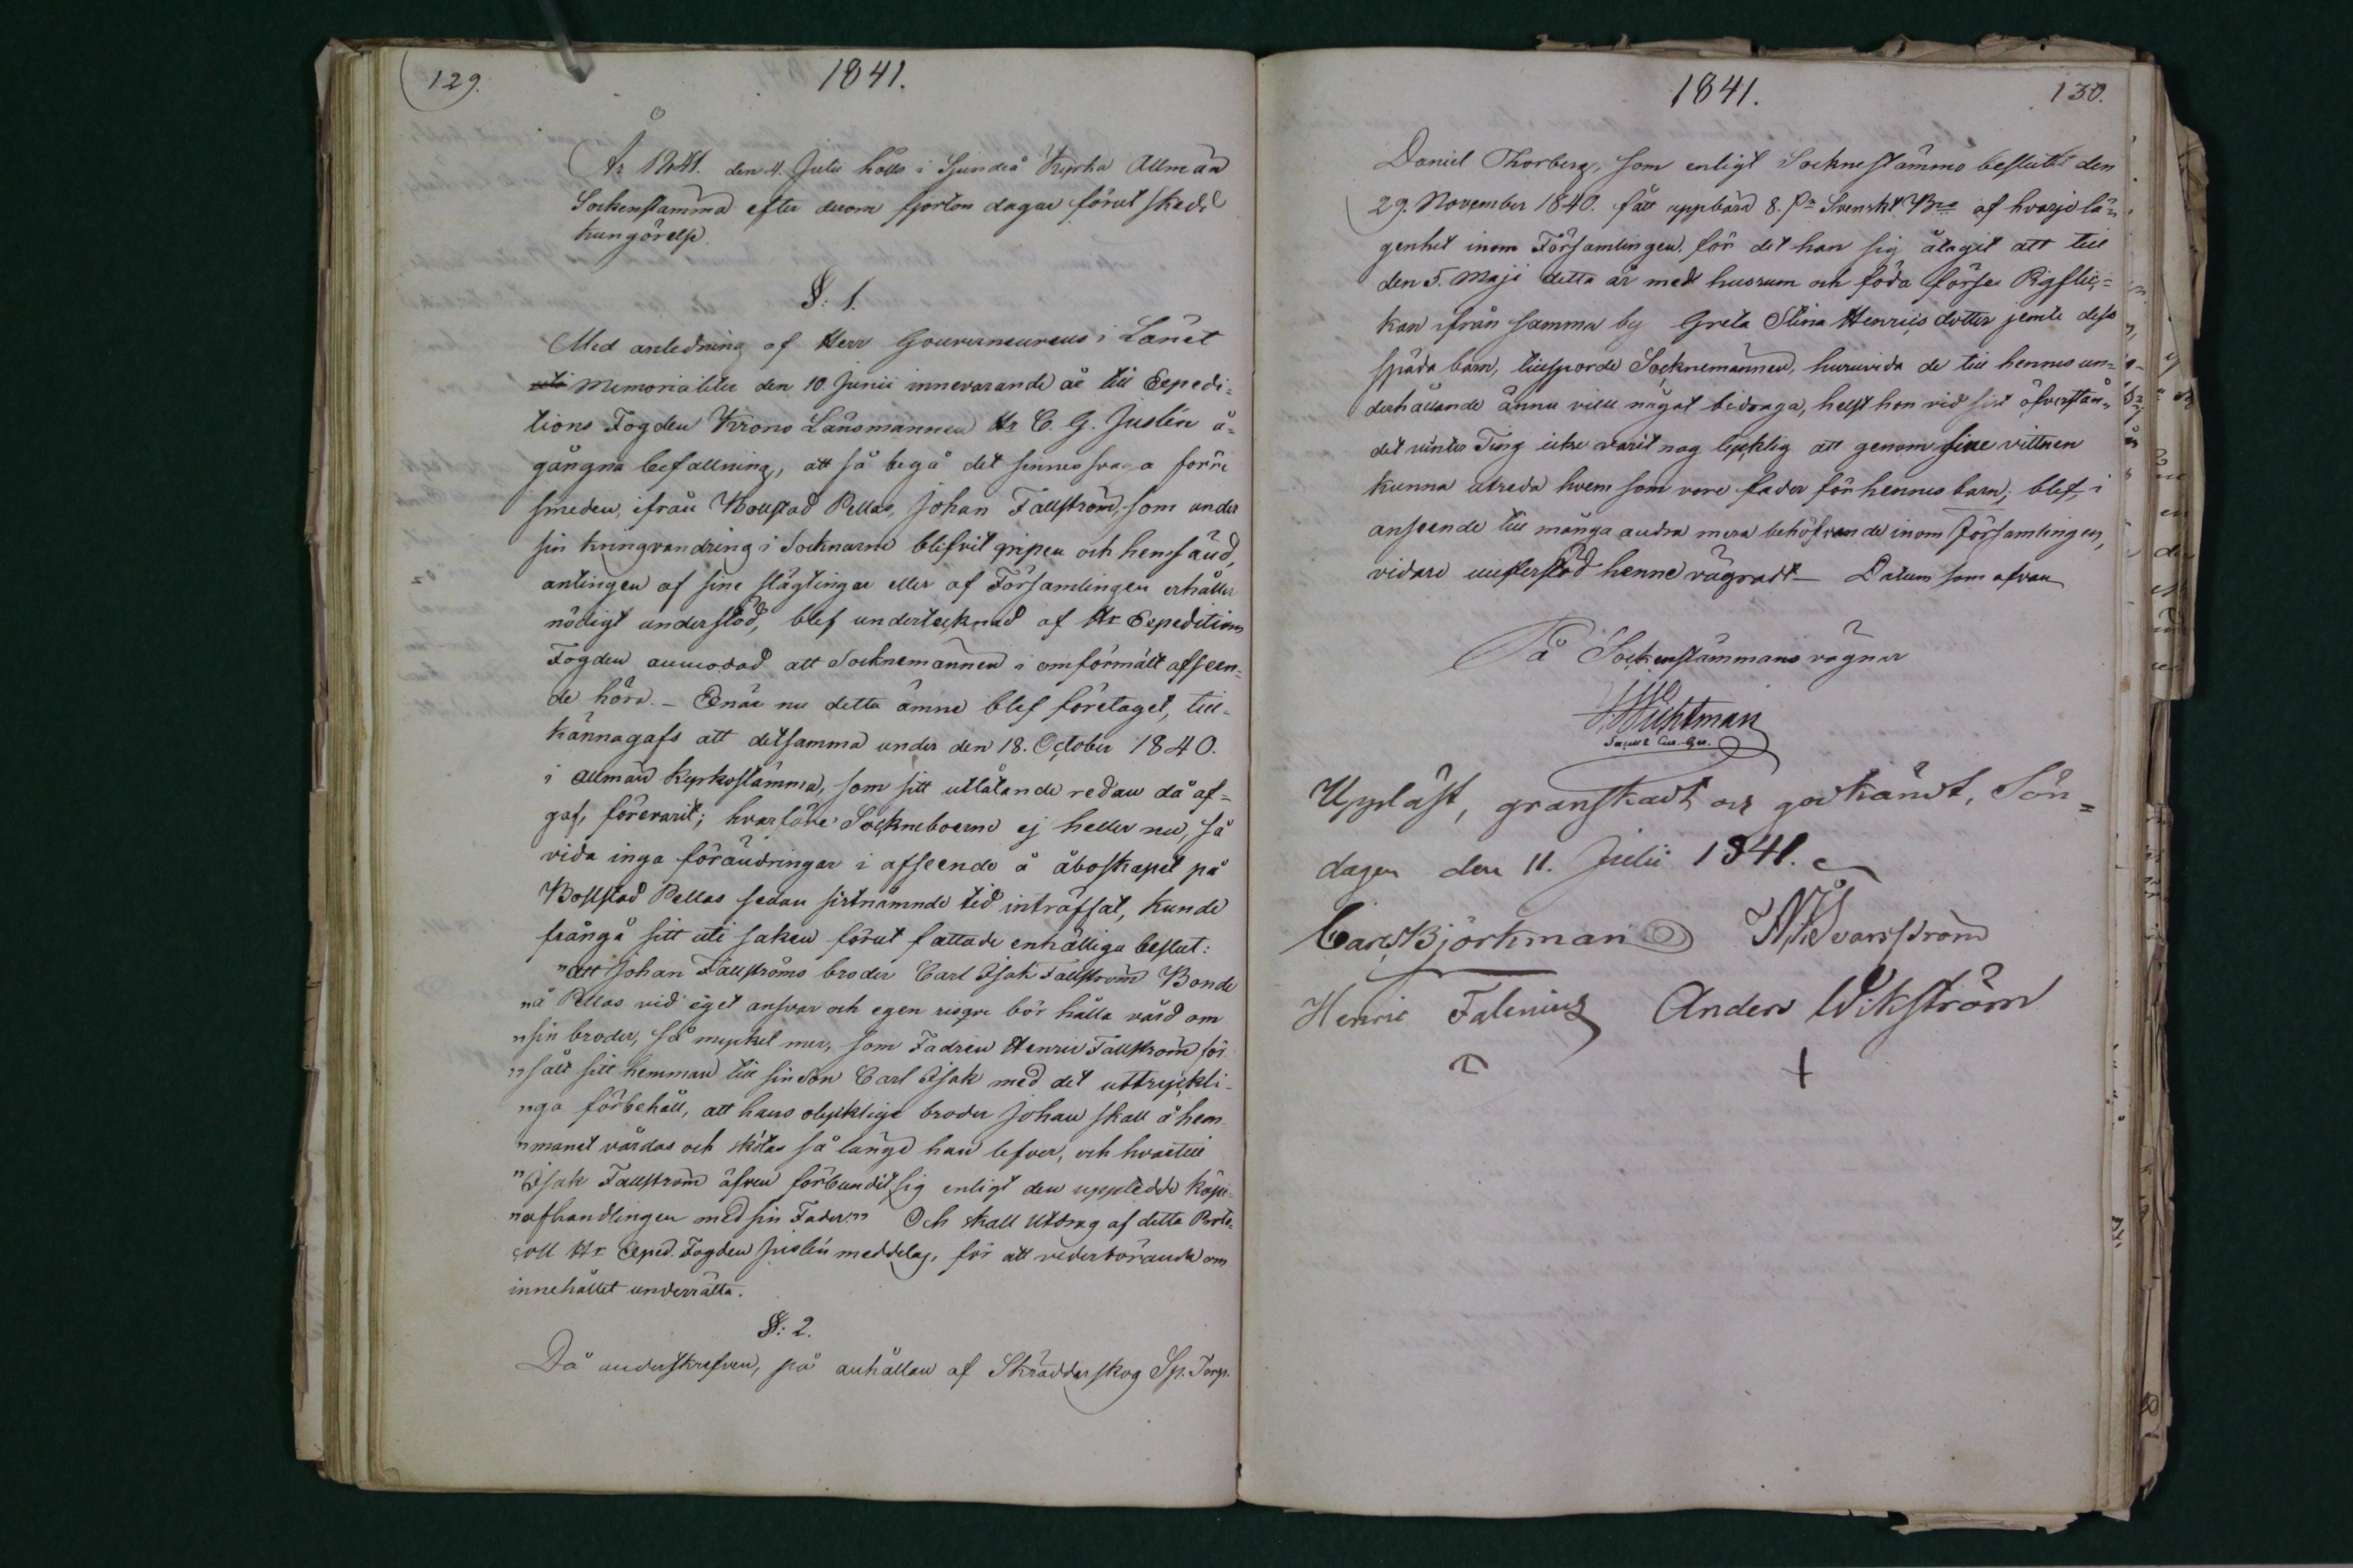 129.
1841.
År 1841. den 4. Julii hölls i Sjundeå Kyrka Allmän
Sockenstämma efter derom fjorton dagar förut skedd
kungörelse.
§: 1.
Med anledning af Herr Gouverneurens i Länet
Memorialiter den 10. Junii innevarande år till Expedi=
tions Fogden Krono Länsmannen Hr C. G. Juslén å=
gångna befallning, att så begå det sinnessvaga förre
smeden, ifrån Bollstad Pellas, Johan Fällström, som under
sin kringvandring i Socknarne blifvit gripen och hemsänd,
antingen af sine slägtingar eller af Församlingen erhåller
nödigt understöd, blef undertecknad af Hr Expeditions
Fogden anmodad att Socknemännen i omförmält afseen=
de höra. – Enär nu detta ämne blef företaget, till=
kännagafs att detsamma under den 18. October 1840.
i allmän Kyrkostämma, som sitt utlåtande redan då af=
gaf, förevarit; hvarföre Sockneboerne ej heller nu, så
vida inga förändringar i afseende å åboskapet på
Bollstad Pellas sedan sistnämnde tid inträffat, kunde
frångå sitt uti saken förut fattade enhälliga beslut:
"att Johan Fällströms broder Carl Isak Fällström Bonde
"å Pellas vid eget ansvar och egen risque bör hålla vård om
"sin broder, så mycket mer, som Fadren Henric Fällström för=
"sålt sitt hemman till sin son Carl Isak med det uttryckli=
"ga förbehåll, att hans olycklige broder Johan skall å hem=
"manet vårdas och skötas så länge han lefver, och hvartill
"Isak Fällström äfven förbundit sig enligt den uppledde köpe=
"afhandlingen med sin Fader." Och skall Utdrag af detta Proto=
coll Hr Exped. Fogden Juslén meddelas, för att vederbörande om
innehållet underrätta.
§: 2.
Då underskrefven, på anhållan af Skräddarskog Sp. Torp.
1841.
130.
Daniel Thorberg, som enligt Socknestämmo beslutet den
29. November 1840. fått uppbära 8. sk. Svenskt Bco af hvarje lä=
genhet inom Församlingen, för det han sig åtagit att till
den 5. Maji detta år med husrum och föda förse Pigflic=
kan ifrån samma by Greta Stina Henricsdotter jemte dess
späda barn, tillsporde Socknemännen, huruvida de till hennes un=
derhållande ännu vill något bidraga, helst hon vid sist öfverstån=
det vinter Ting icke varit nog lycklig att genom sine vittnen
kunna utreda hvem som vore fader för hennes barn; blef, i
anseende till många andra mera behöfvande inom Församlingen,
vidare understöd henne vägradt – Datum som ofvan
På Sockenstämmans vägnar
Wichtman
Upläst, granskadt och godkändt, Sön=
dagen den 11. Julii 1841.
Carl Björkman
Henric Falenius Anders Wikström